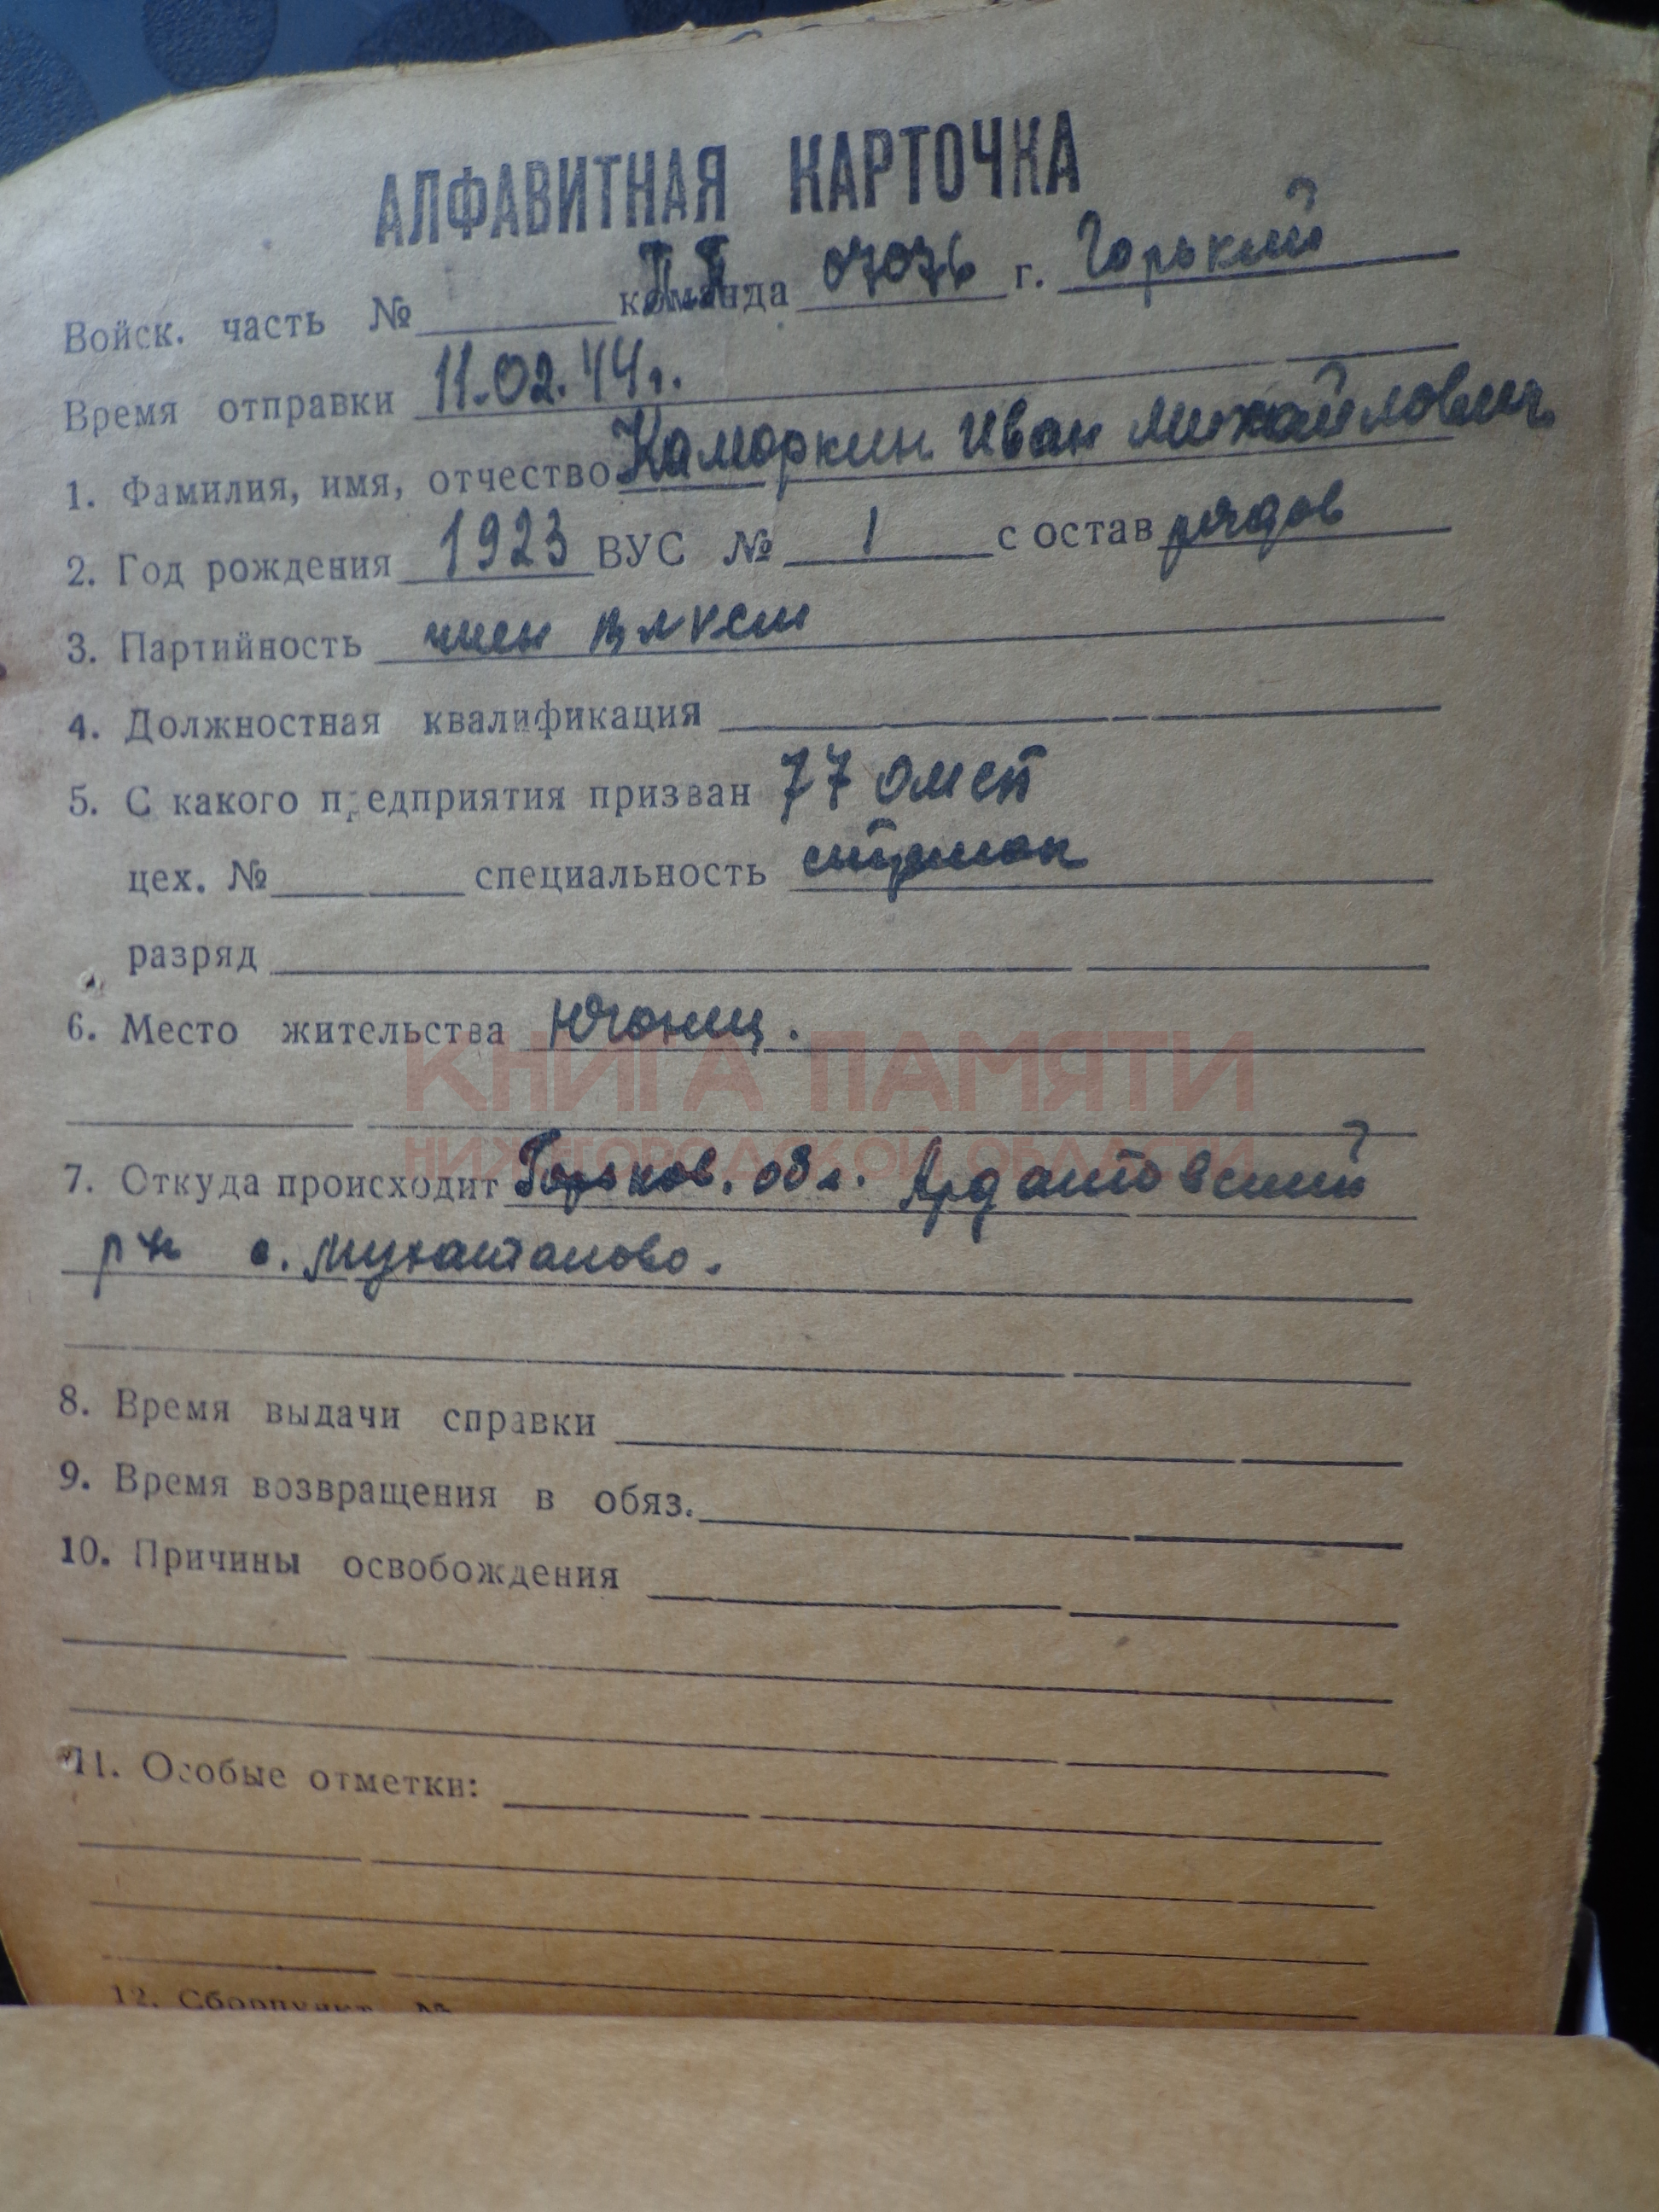 АЛФАВИТНАЯ КАРТОЧКА
Войск. часть № команда П.П. 07076 г. Горький
Время отправки 11.02.44 г.
1. Фамилия, имя, отчество Каморкин Иван Михайлович
2. Год рождения 1923 ВУС № 1 состав рядов
3. Партийность член ВЛКСМ
4. Должностная квалификация
5. С какого предприятия призван 77
цех. № специальность стрелок
разряд
6. Место жительства
КНИГА ПАМЯТИ
НИЖЕГОРОДСКОЙ ОБЛАСТИ
7. Откуда происходит Горьков. обл. Ардатовский
р-н с. Мухтолово.
8. Время выдачи справки
9. Время возвращения в обяз.
10. Причины освобождения
11. Особые отметки:
12. Сборпункт №